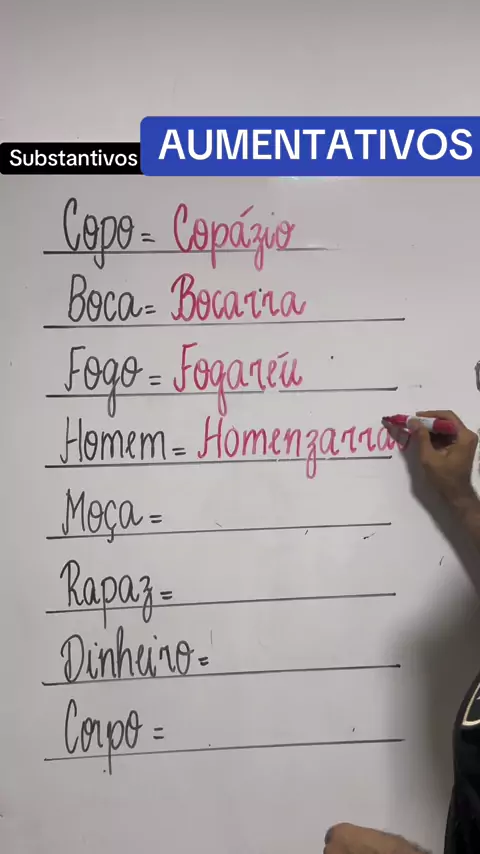 Substantivos AUMENTATIVOS
Copo = Copázio
Boca = Bocarra
Fogo = Fogaréu
Homem = Homenzarrão
Moça =
Rapaz =
Dinheiro =
Corpo =